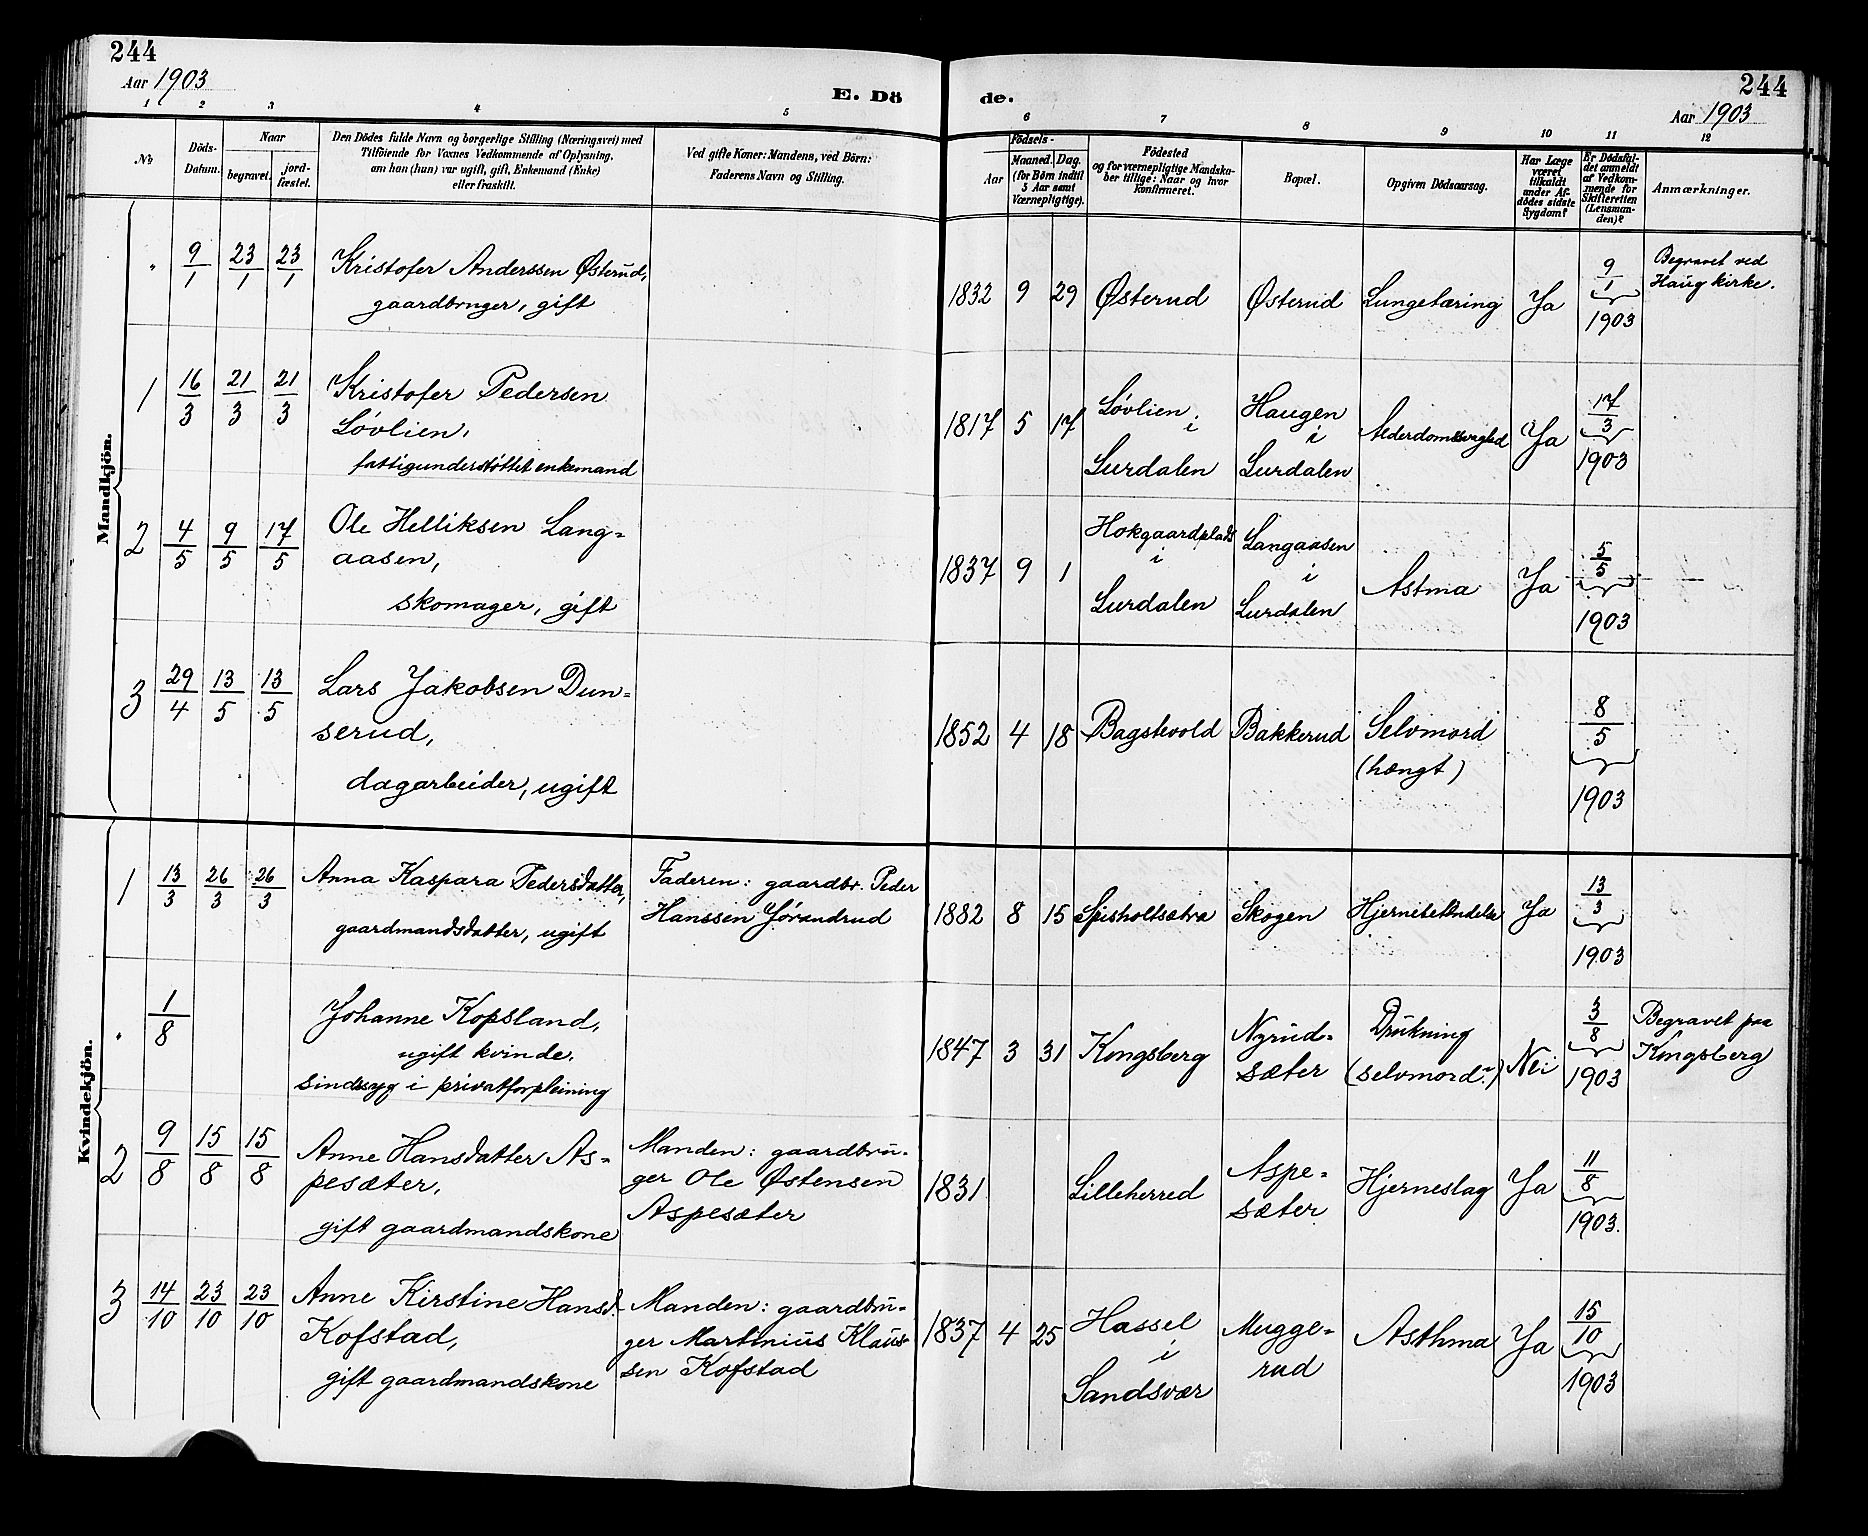 244
Aar 1903
E. Dö
1 2 3 4 5
No
Döds-Datum.
Naar
begravet.
jord-fæstet.
Den Dödes fulde Navn og borgerlige Stilling (Næringsvei) med
Tilföiende for Voxnes Vedkommende af Oplysning,
om han (hun) var ugift, gift, Enkemand (Enke)
eller fraskilt.
Ved gifte Koner: Mandens, ved Börn:
Faderens Navn og Stilling.
Mandkjön.
" 9/1 23/1 23/1 Kristofer Anderssen Østerud,
gaardbruger, gift
1 16/3 21/3 21/3 Kristofer Pedersen
Løvlien,
fattigunderstøttet enkemand
2 4/5 9/5 17/5 Ole Helliksen Lang=
aasen,
skomager, gift
3 29/4 13/5 13/5 Lars Jakobsen Dun=
serud,
dagarbeider, ugift
Kvindekjön.
1 13/3 26/3 26/3 Anna Kaspara Pedersdatter, Faderen: gaardbr. Peder
gaardmandsdatter, ugift Hanssen Jørandrud
" 1/8 Johanne Kopsland,
ugift kvinde,
sindssyg i privatforpleining
2 9/8 15/8 15/8 Anne Hansdatter As=
pesæter,
gift gaardmandskone
Manden: gaardbru-
ger Ole Østensen
Aspesæter
3 14/10 23/10 23/10 Anne Kirstine Hansd.
Kofstad,
gift gaardmandskone
Manden: gaardbru=
ger Martinius Klaus-
sen Kofstad
244
Aar 1903
de.
6 7 8 9 10 11 12
Födsels-
Aar
Maaned. Dag.
(for Börn indtil
5 Aar samt
Værnepligtige).
Födested
og for værnepligtige Mandska-
ber tillige: Naar og hvor
konfirmeret.
Bopæl.
Opgiven Dödsaarsag.
Har Læge
været
tilkaldt
under Af-
dödes sidste
Sygdom?
Er Dödsfal-
det anmeldt
af Vedkom-
mende for
Skifteretten
(Lensman-
den)?
Anmærkninger.
1832 9 29 Østerud Østerud Lungetæring Ja 9/1 1903 Begravet ved
Haug kirke.
1817 5 17 Løvlien i Lurdalen Haugen i Lurdalen Alderdomssvaghed Ja 17/3 1903
1837 9 1 Hokgaardplads i Lurdalen Langaasen i Lurdalen Astma Ja 5/5 1903
1852 4 18 Bagstevold Bakkerud Selvmord
(hængt) 8/5 1903
1882 8 15 Spisholtsætra Skogen Hjernebetændelse Ja 13/3 1903
1847 3 31 Kongsberg Nyrud-
sæter Drukning
(selvmord?) Nei 3/8 1903 Begravet paa
Kongsberg
1831 Lilleherred Aspe=
sæter Hjerneslag Ja 11/8 1903.
1837 4 25 Hassel i Sandsvær Mugge=
rud Asthma Ja 15/10 1903